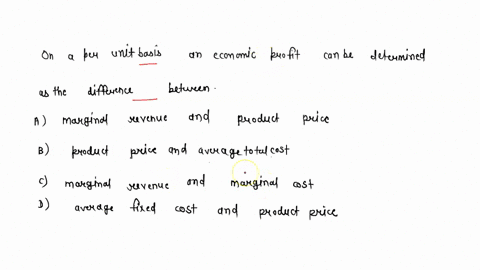 On a per unit basis an economic profit can be determined
as the difference between.
A) marginal revenue and product price
B) product price and average total cost
C) marginal revenue and marginal cost
D) average fixed cost and product price